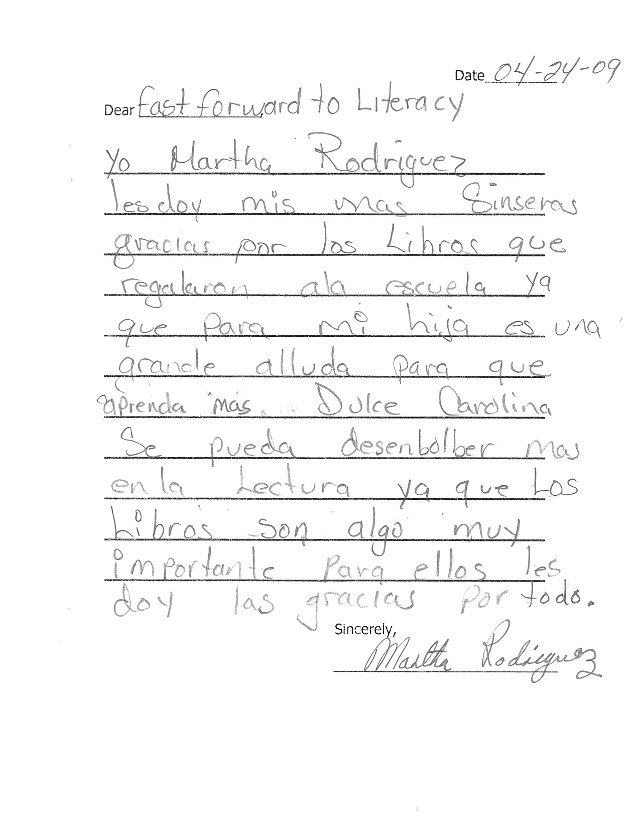 Date 04-24-09
Dear fast forward to Literacy
Yo Martha Rodriguez
les doy mis mas Sinseras
gracias por los Libros que
regalaron ala escuela ya
que para mi hija es una
grande alluda para que
aprenda más. Dulce Carolina
Se pueda desenbolber mas
en la Lectura ya que Los
Libros son algo muy
importante para ellos les
doy las gracias por todo.
Sincerely,
Martha Rodriguez